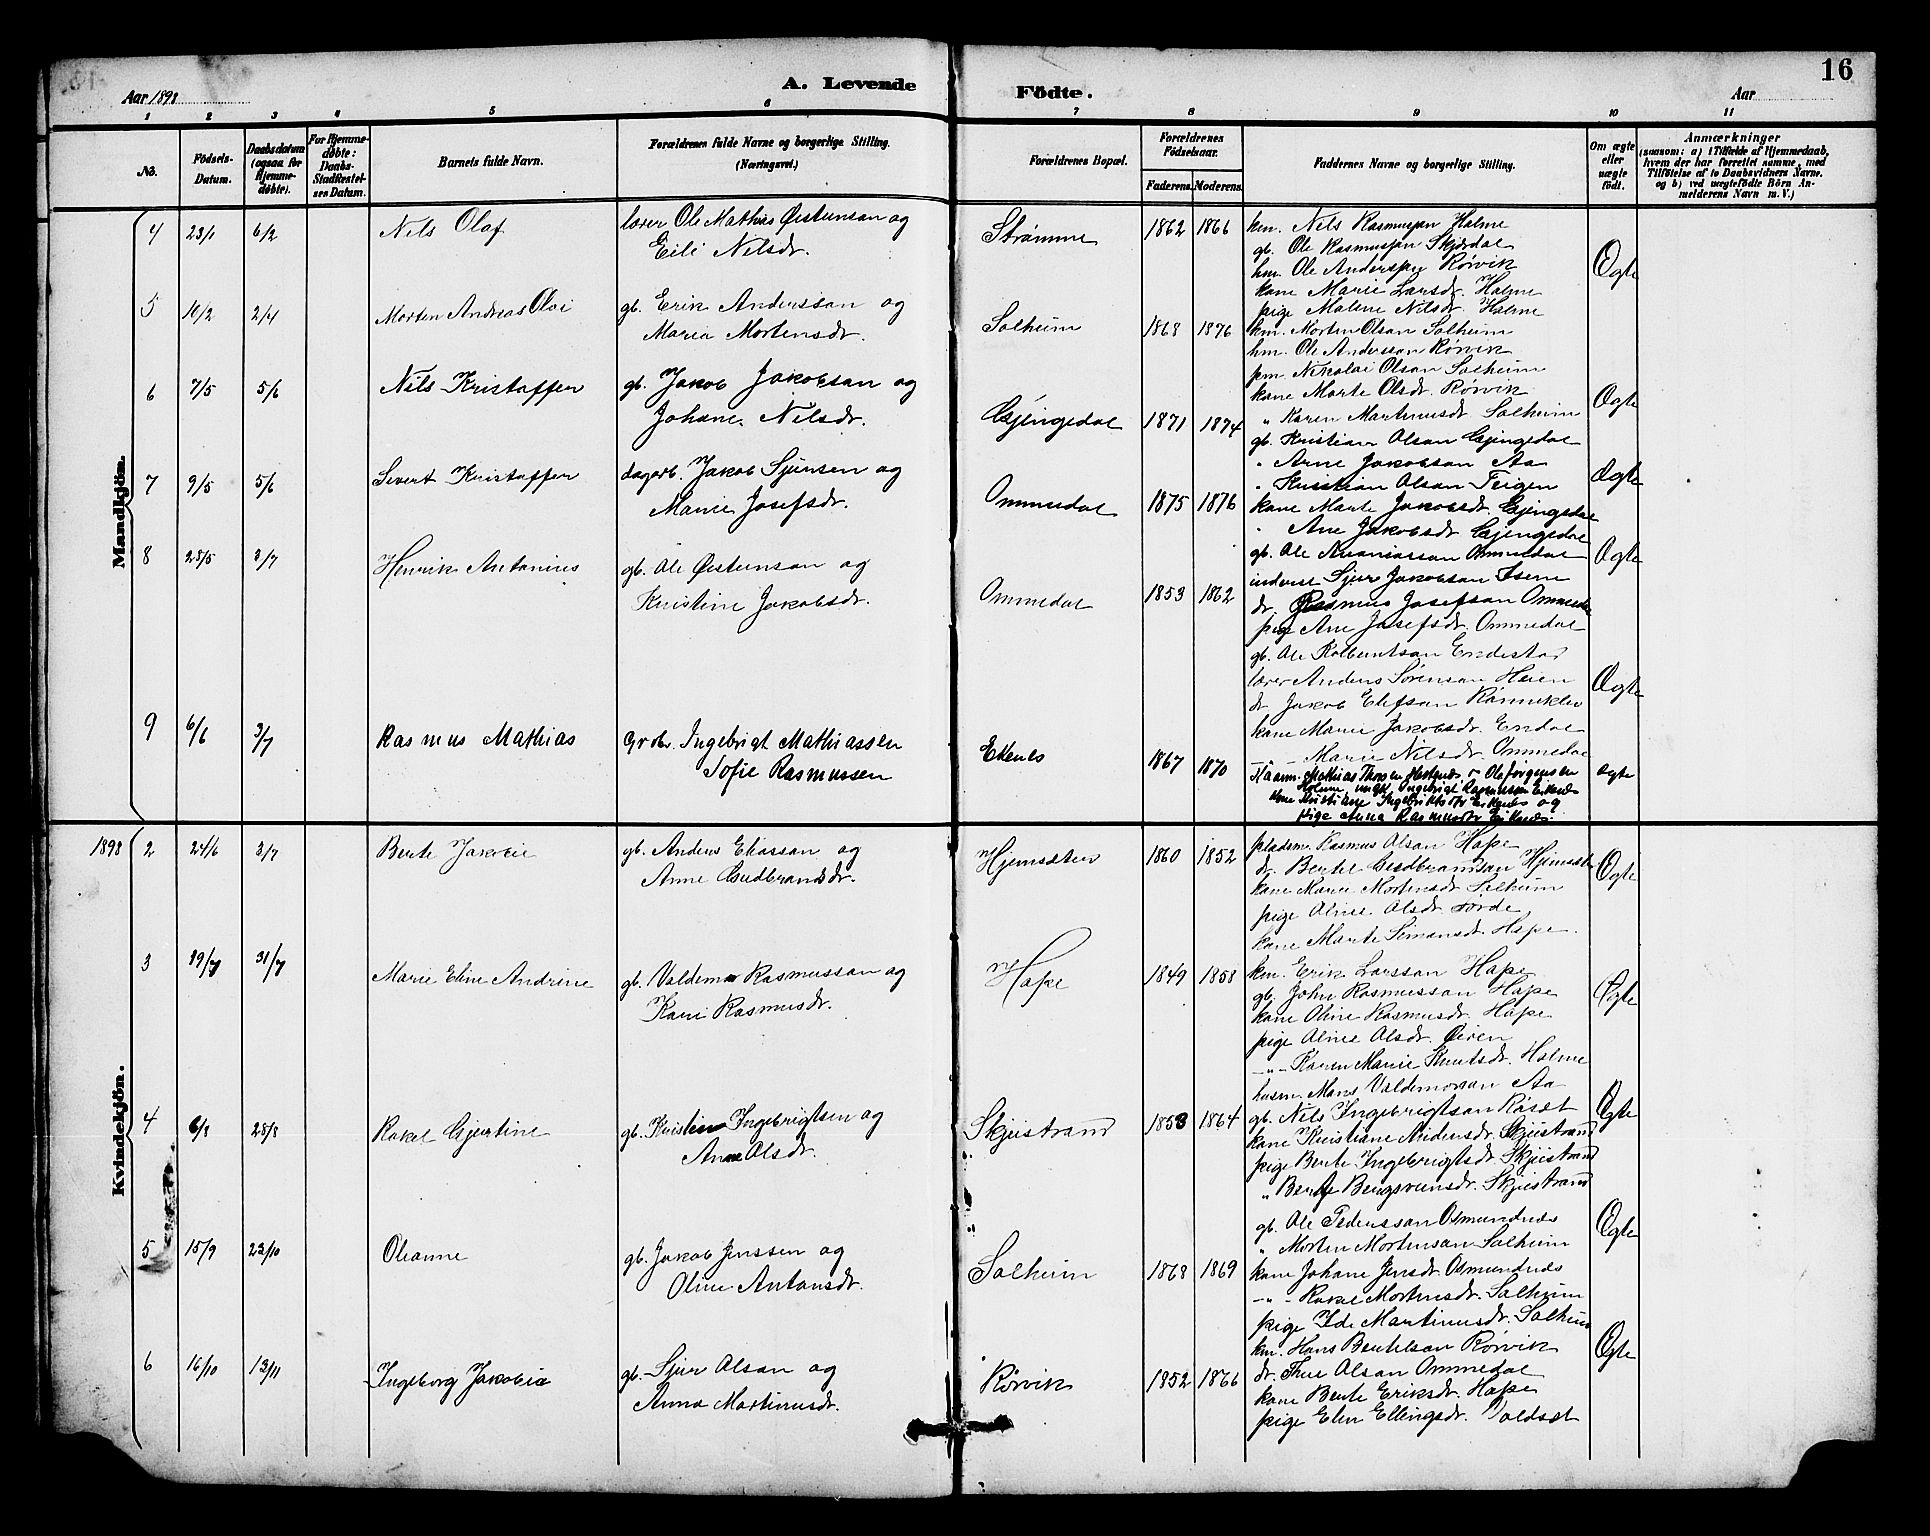 16
Aar 1898
A. Levende
Födte.
Aar
1 2 3 4 5 6 7 8 9 10 11
No.
Födsels-Datum.
Daabsdatum (ogsaa for Hjemme-döbte).
For Hjemme-döbte: Daabs-Stadfæstel-ses Datum.
Barnets fulde Navn.
Forældrenes fulde Navne og borgerlige Stilling. (Næringsvei.)
Forældrenes Bopæl.
Forældrenes Födselsaar.
Faderens. Moderens.
Faddernes Navne og borgerlige Stilling.
Om ægte eller uægte födt.
Anmærkninger
(saasom: a) i Tilfælde af Hjemmedaab, hvem der har forrettet samme, med Tilföielse af to Daabsvidners Navne. og b) ved uægtefödte Börn An-melderens Navn m. V.)
Mandkjön.
4 23/1 6/2 Nils Olaf lærer Ole Mathias Østensøn og
Eili Nilsdr. Strømme 1862 1866 Ægte
km. Nils Rasmussøn Holme
gb. Ole Rasmussøn Skjerdal
hm. Ole Anderssøn Rørvik
kone Marie Larsdr. Holme
pige Malene Nilsdr. Holme
5 10/2 2/4 Morten Andreas Olai gb. Erik Anderssøn og
Maria Mortensdr. Solheim 1868 1876 Ægte
km. Morten Olsøn Solheim
hm. Ole Anderssøn Rørvik
km. Nikolai Olsøn Solheim
kone Marte Olsdr. Rørvik
" Karen Martinusdr. Solheim
6 7/5 5/6 Nils Kristoffer gb. Jakob Jakobsøn og
Johane Nilsdr. Gjengedal 1871 1874 Ægte
gb. Kristian Olsøn Gjengedal
" Arne Jakobsøn Aa
" Kristian Olsøn Teigen
kone Marte Jakobsdr. Gjengedal
" Ane Jakobsdr. Gjengedal
7 9/5 5/6 Sivert Kristoffer dagarb. Jakob Sjursen og
Marie Josefsdr. Ommedal 1875 1876 Ægte
gb. Ole Ananiassøn Ommedal
inderst Sjur Jakobsøn Isene
dr. Rasmus Josefsøn Ommedal
pige Ane Josefsdr. Ommedal
8 28/5 3/7 Henrik Antonius gb. Ole Østensøn og
Kristine Jakobsdr. Ommedal 1853 1862 Ægte
gb. Ole Kolbentsøn Endestad
lærer Anders Sørensøn Heien
dr. Jakob Elefsøn Rønneklev
kone Marie Jakobsdr. Endal
-"- Marie Nilsdr. Ommedal
9 6/6 3/7 Rasmus Mathias Grdbr. Ingebrigt Mathiassen
Sofie Rasmussen Ekenes 1867 1870 ægte
Kaarm. Mathias Thorsen Hestenes - Ole Jørgensen
Holme ungk. Ingebrigt Rasmussen Eikenes
kone Kristiane Ingebriktsdtr Eikenes og
pige Anna Rasmusdtr Eikenes.
Kvindekjön.
1898 2 24/6 3/7 Berte Jakobie gb. Anders Eliassøn og
Anne Gudbrandsdr. Hjemsæter 1860 1852 Ægte
pladsm. Rasmus Olsøn Hope
dr. Bertel Gudbrandsøn Hjemsæter
kone Marie Mortensdr. Solheim
pige Oline Olsdr. Førde
kone Marte Simonsdr. Hope.
3 19/7 31/7 Marie Eline Andrine gb. Valdemar Rasmussøn og
Kari Rasmusdr. Hope 1849 1858 Ægte
km. Erik Larssøn Hope
gb. John Rasmussøn Hope
kone Oline Rasmusdr. Hope
pige Oline Olsdr. Øiren
-"- Karen Marie Knutsdr. Holme
4 6/8 28/8 Rakel Gjertine gb. Kristen Ingebrigtsen og
Anne Olsdr. Skjeistrand 1853 1864 Ægte
husm. Mons Valdemarsøn Aa
gb. Nils Ingebrigtsøn Røsæt
kone Kristiane Andersdr. Skjeistrand
pige Berte Ingebrigtsdr. Skjeistrand
" Berte Bengsveinsdr. Skjeistrand
5 15/9 23/10 Oleanne gb. Jakob Jenssen og
Oline Antonsdr. Solheim 1868 1869 Ægte
gb. Ole Pederssøn Osmundnes
" Morten Mortensøn Solheim
kone Johane Jensdr. Osmundnes
-"- Rakel Mortensdr. Solheim
pige Ide Martinusdr. Solheim
6 16/10 13/11 Ingeborg Jakobie gb. Sjur Olsøn og
Anna Martinusdr. Rørvik 1852 1866 Ægte
km. Hans Bertelsøn Rørvik
dr. Thue Olsøn Ommedal
kone Berte Eriksdr. Hope
pige Elen Ellingsdr. Voldsæt